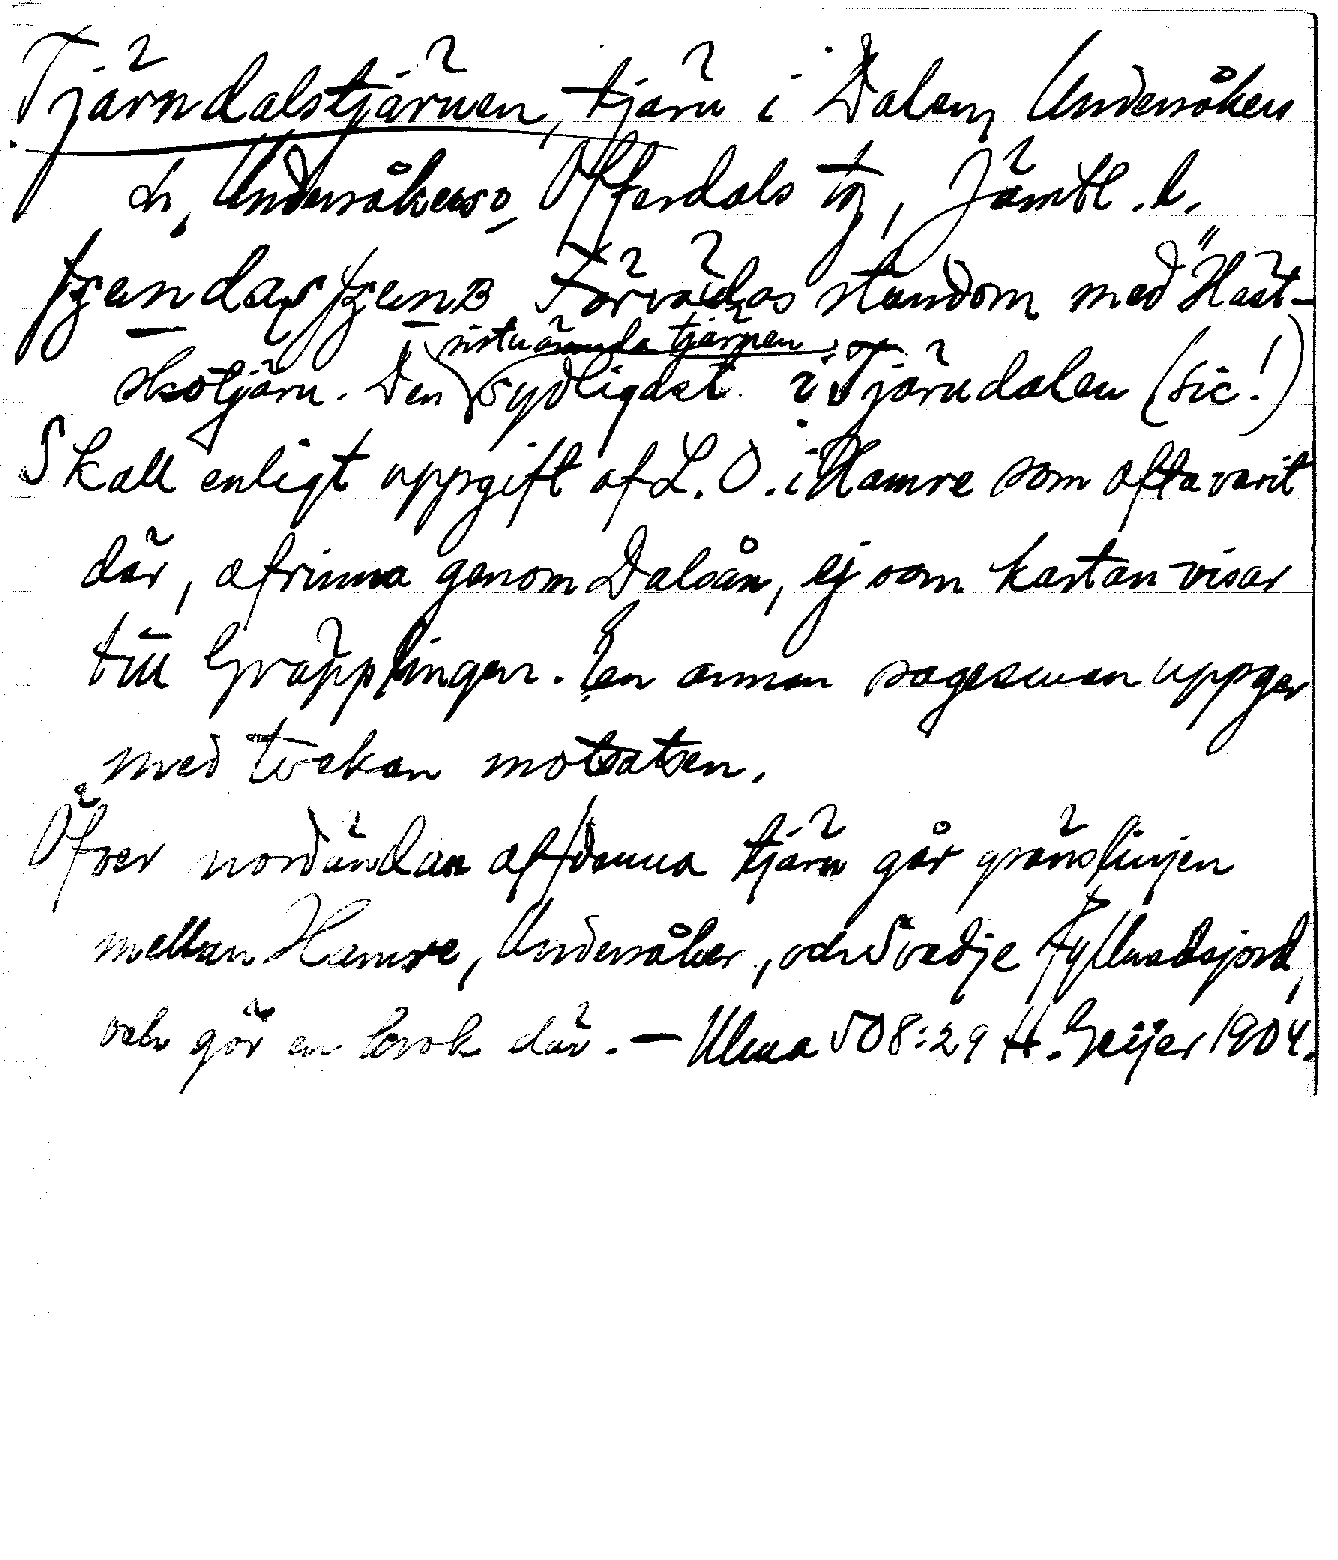 Tjärndalstjärnen, tjärn i Dalen, Undersåkers
sn, Undersåkers o. Offerdals tg, Jämtl. l.
Förväxlas stundom med "Häst-
sistnämnda tjärnen
skotjärn. Den sydligast i Tjärndalen (sic!)
Skall enligt uppgift af L. O. i Hamre som ofta varit
där, afrinna genom Dalsån, ej som kartan visar
till Gräpplingen. En annan sagesman uppger
med tvekan motsatsen.
Öfver nordändan af denna tjärn går gränslinjen
mellan Hamre, Undersåker, och Svedje
och gör en krok där. – Ulma 508:29 H. Geijer 1904.